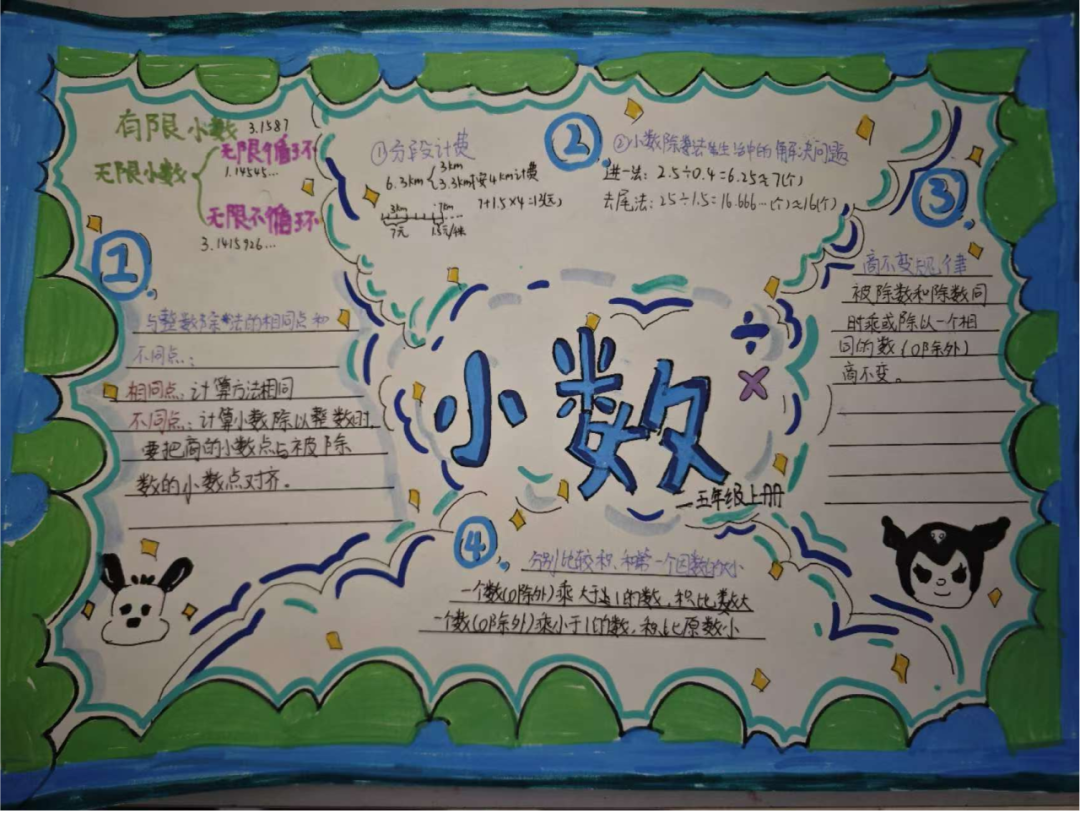 有限小数 3.1587
无限小数
无限循环
1.14545...
无限不循环
3.1415926...
1
与整数除法的相同点和
不同点:
相同点:计算方法相同
不同点:计算小数除以整数时,
要把商的小数点与被除
数的小数点对齐。
2
①分段计费
3km
6.3km
3.3km按4km计费
3km
7元
1.5元/km
7+1.5×4=13(元)
②小数除法在生活中的解决问题
进一法:2.5÷0.4=6.25≈7(个)
去尾法:25÷1.5=16.666…(个)≈16(个)
3
商不变规律
被除数和除数同
时乘或除以一个相
同的数(0除外)
商不变。
小数
÷
×
—五年级上册
4
分别比较积和第一个因数的大小
一个数(0除外)乘大于1的数,积比数大
一个数(0除外)乘小于1的数,积比原数小